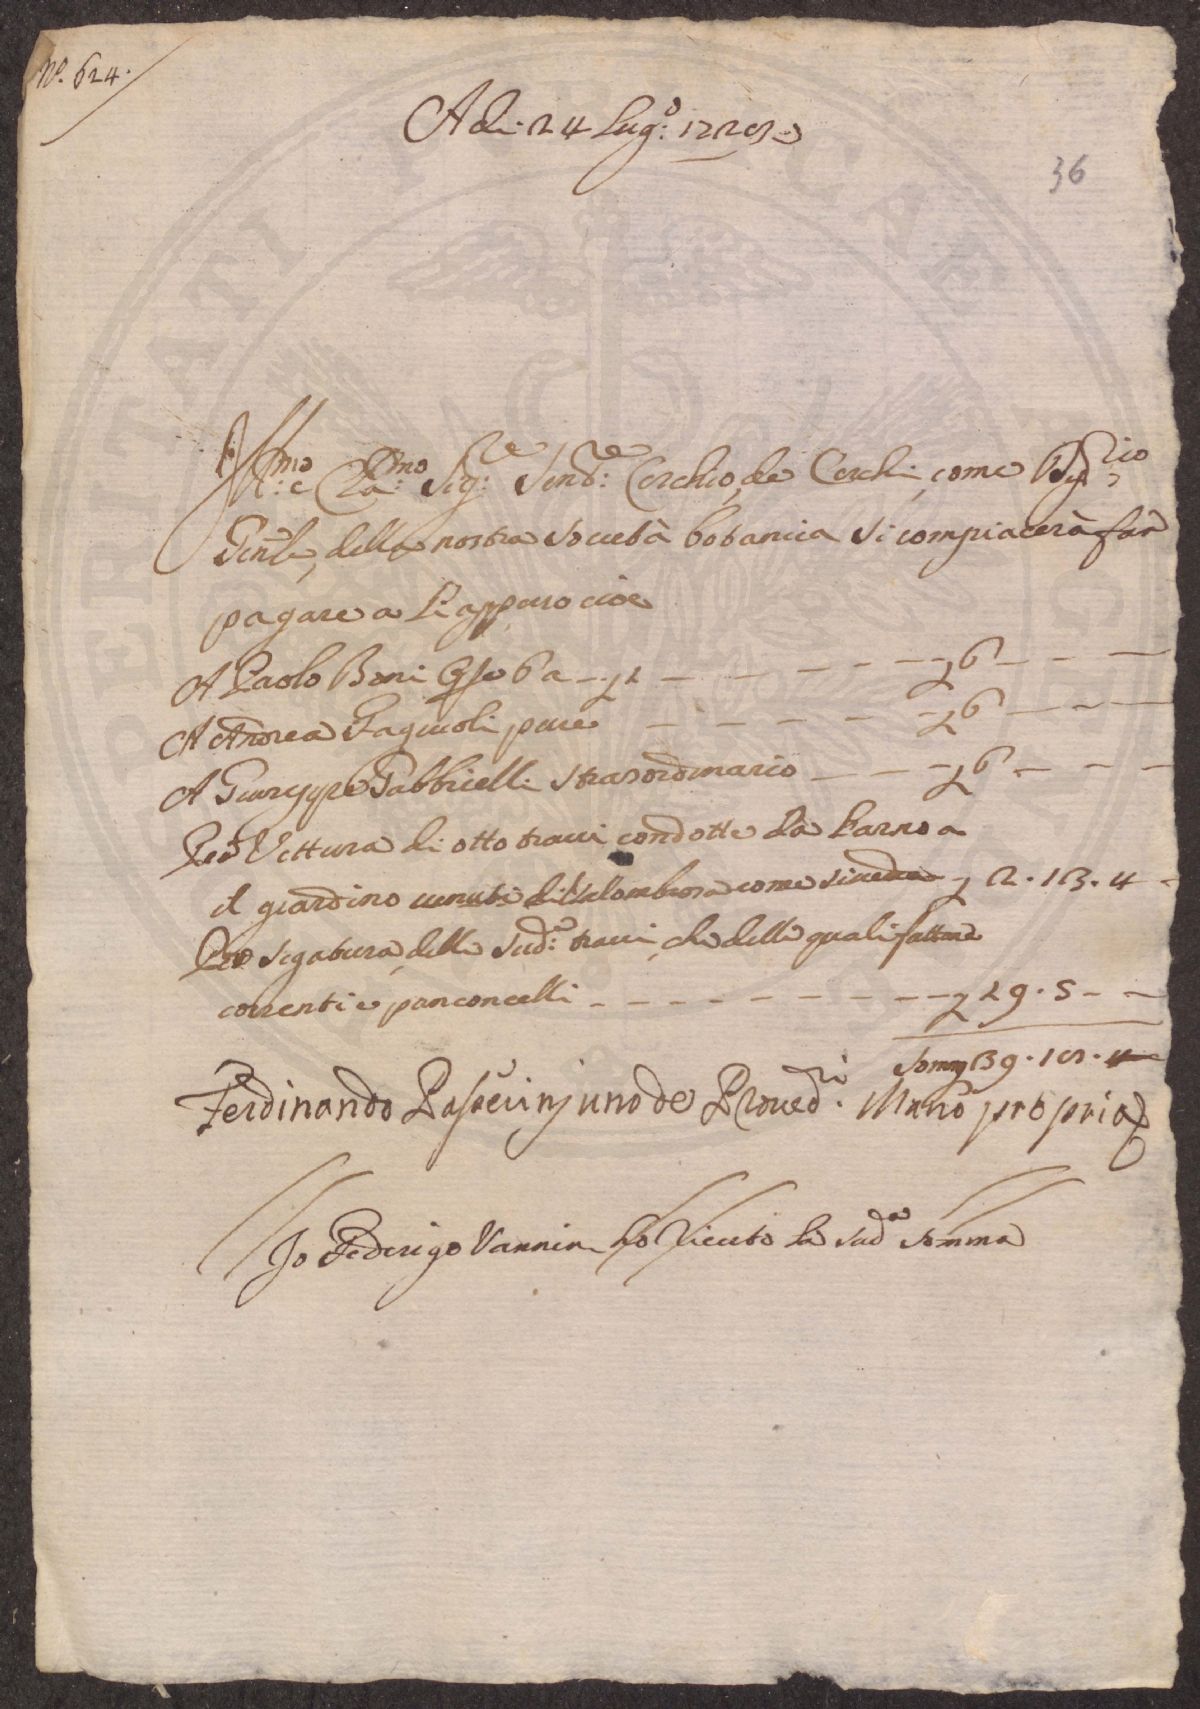 N.º 624.
A di: 24 Lug.º 172
36
Ill.mo e Cla.mo Sig.re Send.re Cerchio, de Cerchi, come
Gen.le, della nostra Società botanica si compiacerà far
pagare a li appiero cioè
A Paolo Boni 6 a
A Andrea Fagiuoli pure 6
A Giuseppe Gabbrielli straordinario 6
Per Vettura di otto travi condotte da Larno a
il giardino venuti di Valombrosa come si vede 2 . 13 . 4
Per segatura, delle Sud.e travi, che delle quali fattone
correnti e panconcelli 19 . 5
Somm 39 . 4
Ferdinando uno de Proved.ri Mano propria
Io Federigo Vannini ho riceuto la sud.a somma
PERITATI FABRICAE